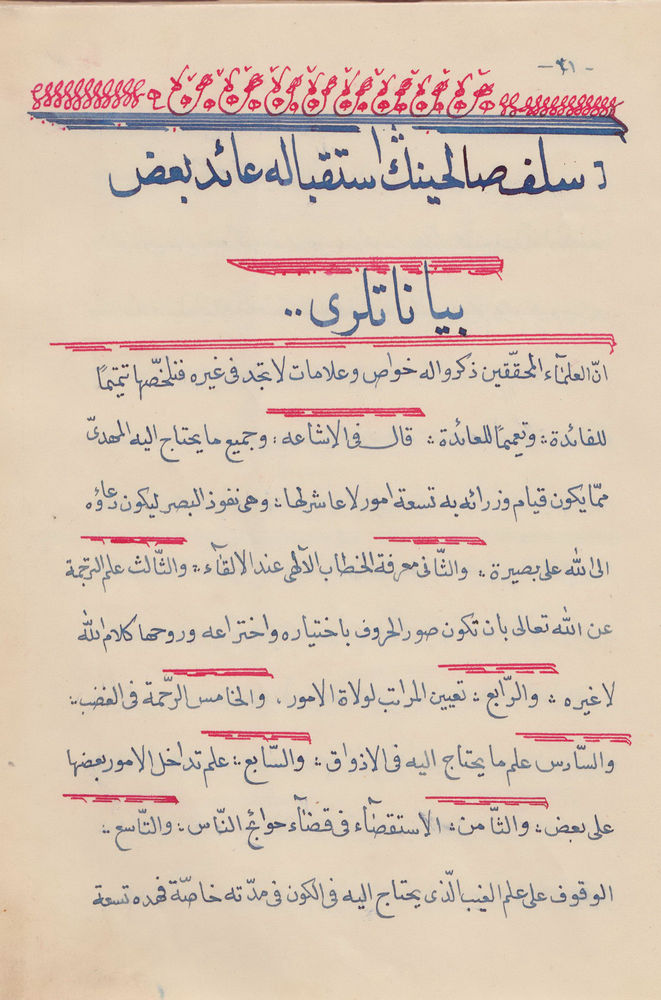 - ٤١ -
: سلف صالحينك استقباله عائد بعض
بياناتلرى ..
انّ العلمآء المحقّقين ذكروا له خواص وعلامات لا تجد فى غيره فنلخّصها تتميمًا
للفائدة : وتعميمًا للعائدة : قال فى الاشاعه : وجميع ما يحتاج اليه المهدىّ
ممّا يكون قيام وزرائه به تسعة امور لا عاشر لها : وهى نفوذ البصر ليكون دعاؤه
الى الله على بصيرة : والثّانى معرفة الخطاب الآلهى عند الالقآء : والثّالث علم الترجمة
عن الله تعالى بان تكون صور الحروف باختياره واختراعه وروحها كلام الله
لا غيره : والرّابع : تعيين المراتب لولاة الامور . والخامس الرّحمة فى الغضب :
والسّادس علم ما يحتاج اليه فى الاذواق : والسّابع : علم تداخل الامور بعضها
على بعض : والثّامن : الاستقصآء فى قضآء حوائج النّاس : والتّاسع :
الوقوف على علم الغيب الّذى يحتاج اليه فى الكون فى مدّته خاصّة فهذه تسعة